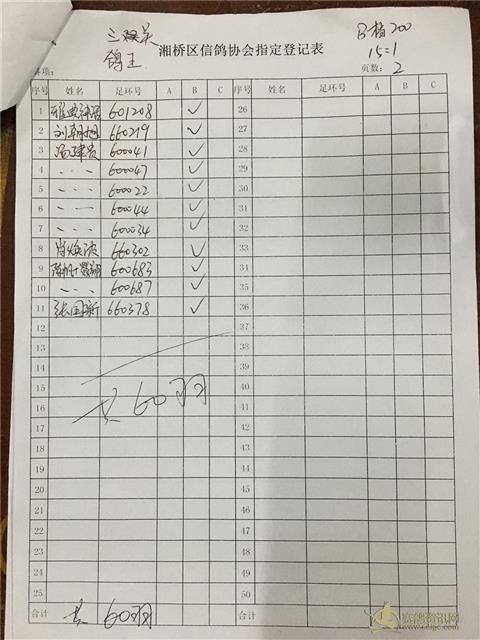 三 关
B档 200
鸽王
湘桥区信鸽协会指定登记表
15=1
事项:
页数: 2
序号 姓名 足环号 A B C 序号 姓名 足环号 A B C
1 雅典神话 601208 ✓ 26
2 刘朝旭 660219 ✓ 27
3 600041 ✓ 28
4 、、、 600047 ✓ 29
5 、、、 600022 ✓ 30
6 、一一 600044 ✓ 31
7 、、、 600034 ✓ 32
8 肖焕波 660302 ✓ 33
9 600683 ✓ 34
10 、、、 600687 ✓ 35
11 张国新 660378 ✓ 36
12 37
13 38
14 39
15 40
共 60羽
16 41
17 42
18 43
19 44
20 45
21 46
22 47
23 48
24 49
25 50
合计 共 60羽 合计
赛鸽资讯网